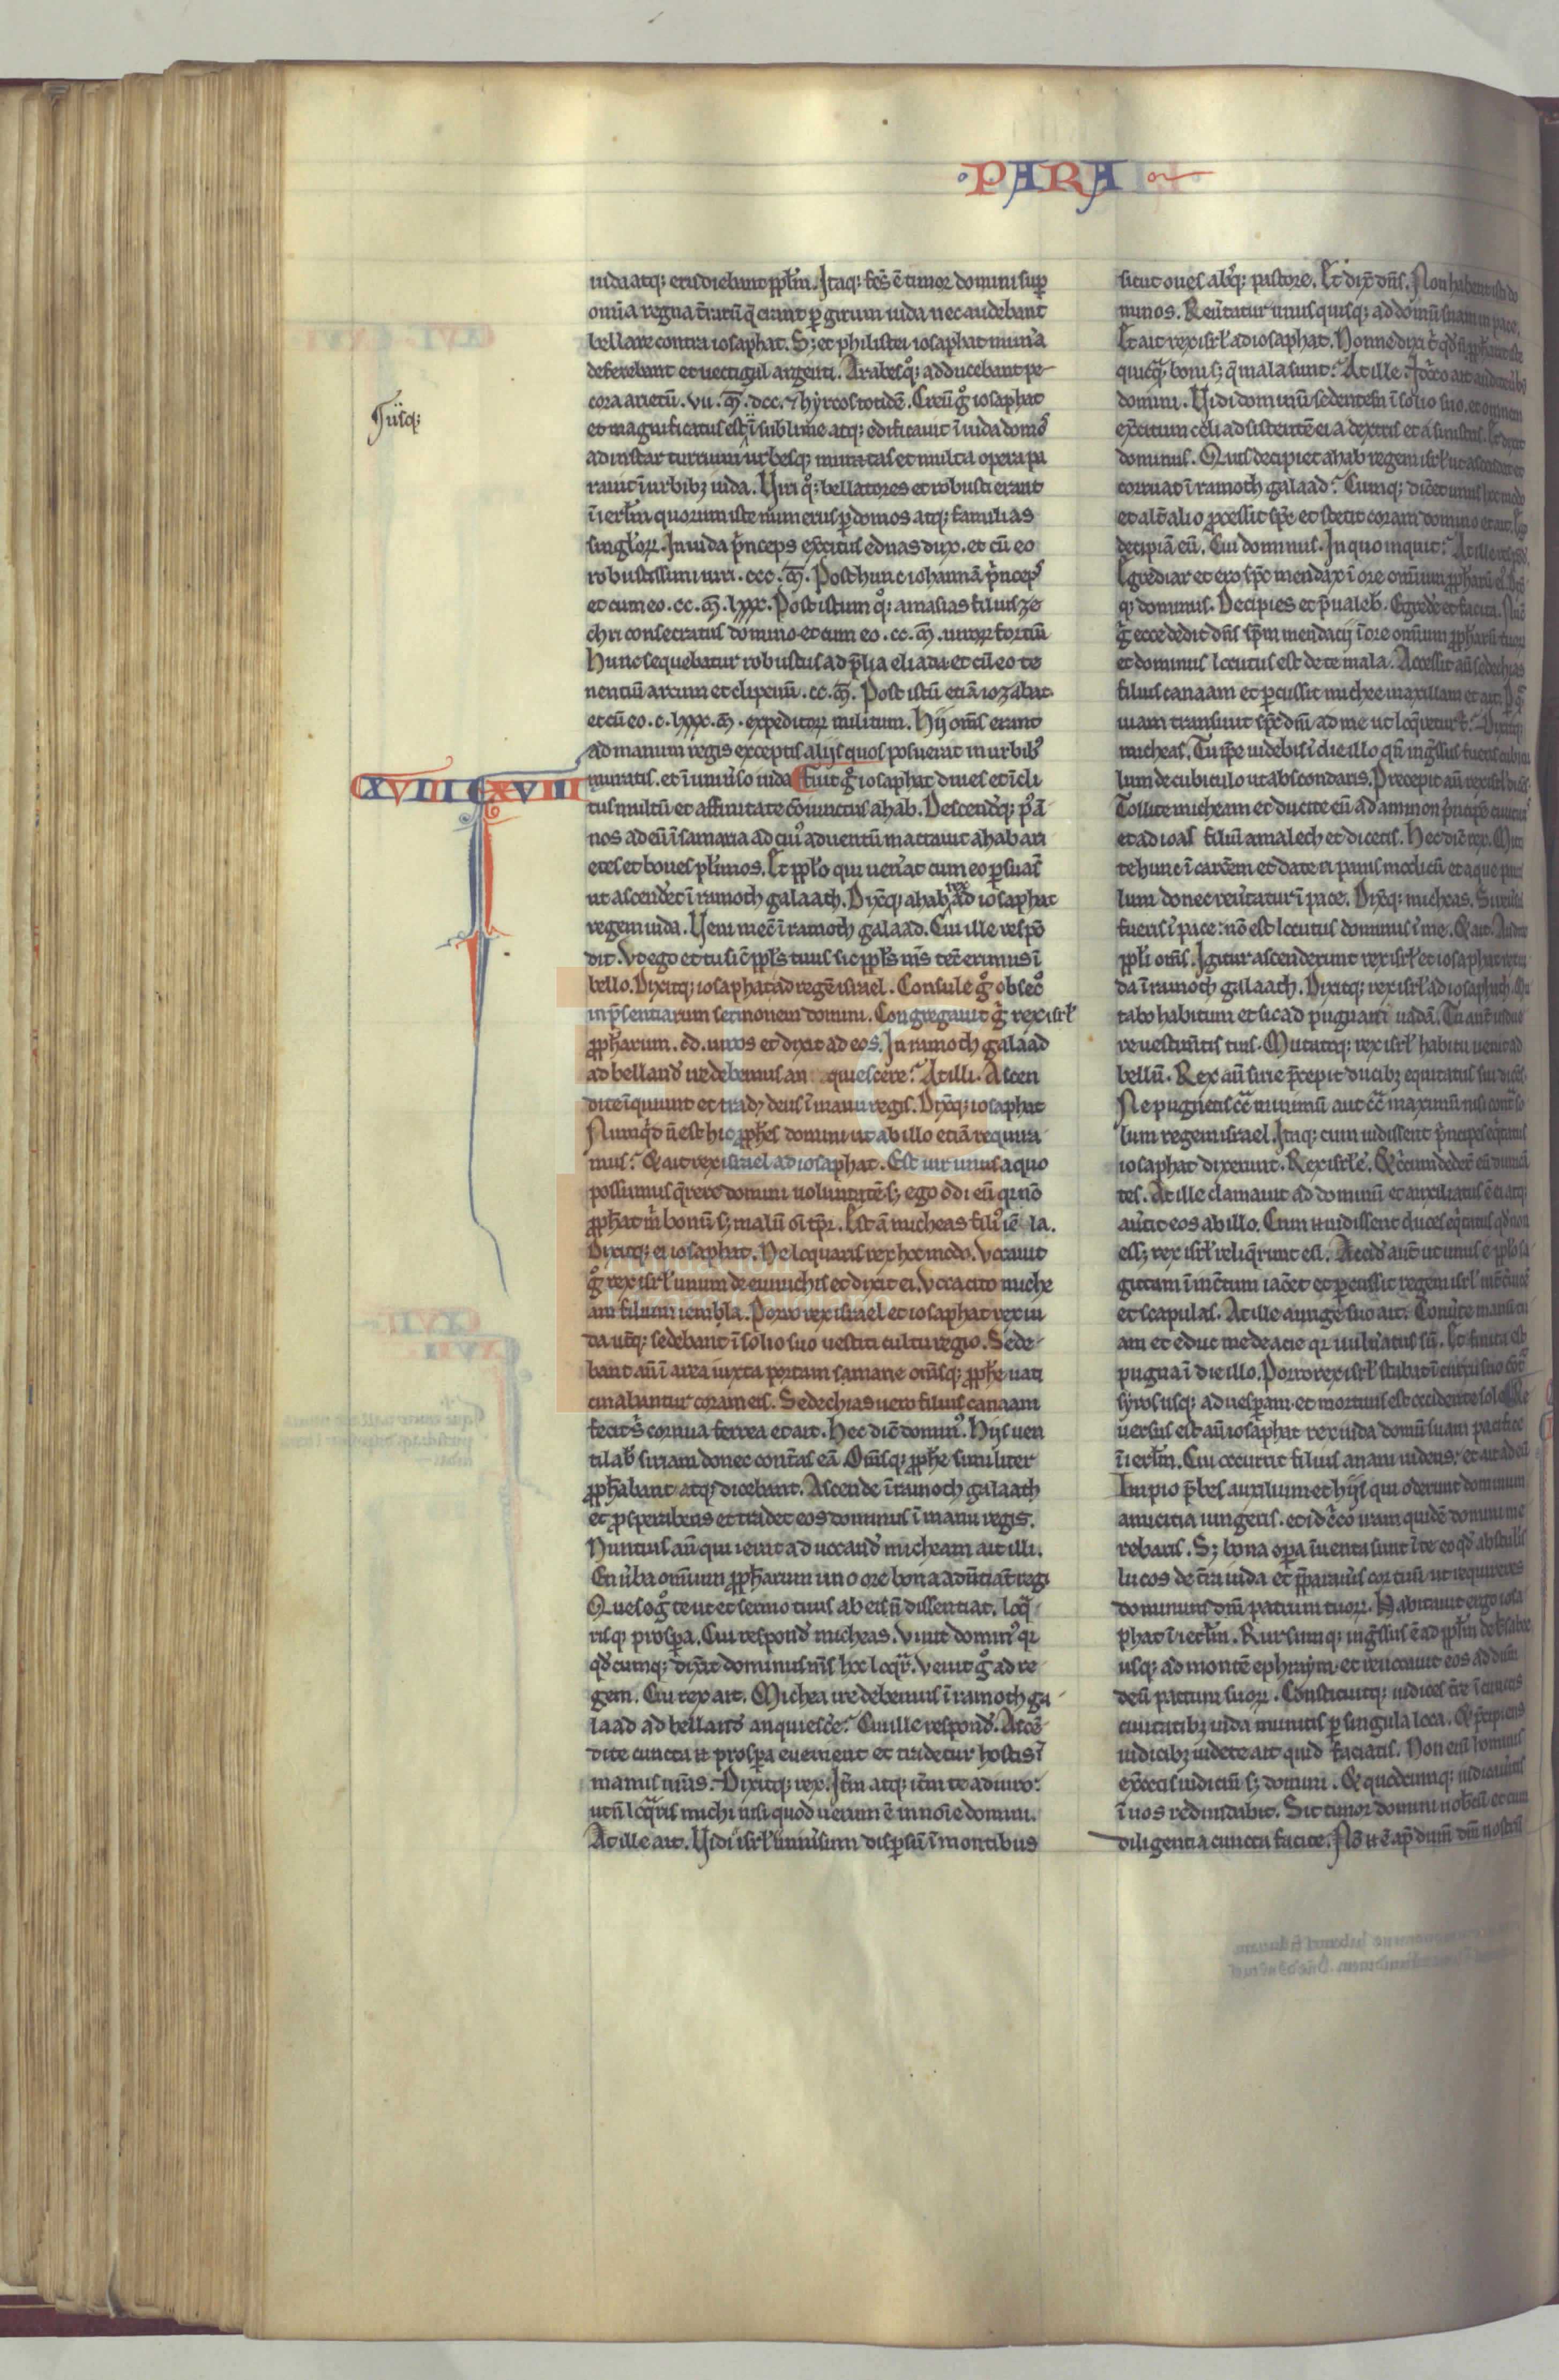 PARA
iuda atq; erudiebant ppl̄m. Itaq; fc̄s ē timor domini sup̄
om̄ia regna t̄raꝝ q̄ erant p̄ girum iuda nec audebant
bellare contra iosaphat. S; et philistei iosaphat mun̄a
deferebant et uectigal argenti. Arabes q°; adducebant pe
cora arietū. vii. m̄. dcc. ⁊ hyrcos totidē. Creū g° iosaphat
usq;
et magnificatus est ī sublime atq; edificauit ī iuda domos
ad instar turrium urbesq; muratas et multa opera pa
rauit ī urbibꝫ iuda. Uiri q°; bellatores et robusti erant
ī ierl̄m quorum iste numerus p̄ domos atq; familias
singl'oꝝ. In iuda p̄nceps ex̄citus ednas dux. et cū eo
robustissimi uiri. ccc. m̄. Post hunc iohannā p̄nceps
et cum eo. cc. m̄. lxxx. Post istum q°; amasias filius ze
chri consecratus domino et cum eo. cc. m̄. uiroꝝ fortiū
hunc sequebatur robustus ad p̄lia eliada et cū eo te
nentiū arcum et clipeum. cc. m̄. Post istū etiā iozabat
et cū eo. c. lxxx. m̄. expeditoꝝ militum. Hij om̄s erant
ad manum regis exceptis alijs quos posuerat in urbibꝰ
XVIII XVIII
muratis. et ī uniūso iuda Fuit g° iosaphat diues et īcli
tus multū et affinitate cōiunctus ahab. Descendq; p° ā
nos ad eū ī samaria ad cuiꝰ aduentū mactauit ahab ari
etes et boues pl'imos. Et ppl'o qui uen̄at cum eo p̄suas̄
ut ascendet ī ramoth galaath. Dix̄q; ahab rex ad iosaphat
regem iuda. Ueni mec̄ ī ramoth galaad. Cui ille respō
dit. Ut ego et tu sic̄ ppl's tuus sic ppl's m̄s tec̄ erimus ī
bello. Dixitq; iosaphat ad regē israel. Consule g° obsec°
in p̄sentiarum sermonem domini. Congregauit g° rex isrł
ꝓph'arum. cd. uiros et dixit ad eos. In ramoth galaad
ad belland' ire debemus an quiescere? At illi. Ascen
dite īquiunt et trad; deus ī manu regis. Dix̄q; iosaphat
Numq'd n̄ est hic ꝓph'es domini ut ab illo etiā requira
mus? Et ait rex israel ad iosaphat. Est uir unus a quo
possumus q̄rere domini uoluntatē s; ego odi eū qr nō
ꝓph'at m bonū s; malū oī tp̄r. Est ā micheas filiꝰ iē la.
Dixitq; ei iosaphat. Ne loquaris rex hoc modo. Vocauit
g° rex isrł unum de eunuchis et dixit ei. Voca cito miche
am filium iembla. Porro rex israel et iosaphat rex iu
da ut̄q; sedebant ī solio suo uestiti cultu regio. Sede
bant aū ī area iuxta portam samarie om̄sq; ꝓph'e uati
cinabantur coram eis. Sedechias uero filius canaam
fecit s̄ cornua ferrea et ait. Hec dic̄ domin°. Hijs uen
tilab' siriam donec cont̄as eā. Om̄sq; ꝓph'e similiter
ꝓph'abant atq; dicebant. Ascende ī ramoth galaath
et ꝓsperaberis et tradet eos dominus ī manu regis.
Nuntius aū qui ierat ad uocand' micheam ait illi.
En ūba om̄ium ꝓph'arum uno ore bona adnūtiat regi
Queso g° te ut et sermo tuus ab eis n̄ dissentiat. loq̄
risq; prosp̄a. Cui respond' micheas. Viuit domin° qr
qd'cumq; dix̄it dominus m̄s hoc loq̄r. Venit g° ad re
gem. Cui rex ait. Michea ire debemus ī ramoth ga
laad ad belland' an quiesc̄e? Cui ille respond'. Ascē
dite cuncta n̄ prosp̄a euenient et tradetur hostes ī
manus ūras. Dixitq; rex. It̄m atq; it̄m te adiuro:
ut n̄ loq̄ris michi nisi quod uerum ē in noīe domini.
At ille ait. Uidi isrł uniūsum disp̄sū ī montibus
sicut oues abs̄q; pastore. Et dix̄ dn̄s. Non habent isti do
minos. Reūtatur unus quisq; ad domū suam in pace.
Et ait rex isrł ad iosaphat. Nonne dixi t' qd' n̄ ꝓph'aret iste
quicq̄ boni s; q̄ mala sunt? At ille. Idc°co ait audite ūbū
domini. Uidi dominū sedentem ī solio suo. et omnem
ex̄citum celi adsistentē ei a dextris et a sinistris. Et dixit
dominus. Quis decipiet ahab regem isrł ut ascendat et
corruat ī ramoth galaad? Cumq; dic̄et unus hoc modo
et alt̄ alio ꝓcessit sp̄c et stetit coram domino et ait. Ego
decipiā eū. Cui dominus. In quo inquit? At ille respōd'.
Egrediar et ero sp̄c mendax ī ore om̄ium ꝓph'arū eiꝰ. Dix̄
q; dominus. Decipies et p̄ualeb'. Egrede et fac ita. Nūc
g° ecce dedit dn̄s sp̄m mendacij ī ore om̄ium ꝓph'arū tuoꝝ
et dominus locutus est de te mala. Accessit aū sedechias
filius canaam et p̄cussit michee maxillam et ait. P̄ q̄
uiam transiuit sp̄c dn̄i ad me ut loq̄retur t'? Dixitq;
micheas. Tu ip̄e uidebis ī die illo qn̄ ingssus fueris cubicu
lum de cubiculo ut abscondaris. Precepit aū rex isrł dicēs.
Tollite micheam et ducite eū ad ammon p̄ncipē ciuitatis
et ad ioas filiū amalech et dicetis. Hec dic̄ rex. Mit
te hunc ī carc̄em et date ei panis modicū et aque pau
lum donec reūtatur ī pace. Dix̄q; micheas. Si reūsus
fueris ī pace: nō est locutus dominus ī me. Et ait. Audite
ppl'i om̄s. Igitur ascenderunt rex isrł et iosaphat rex iu
da ī ramoth galaath. Dixitq; rex isrł ad iosaphath. Mu
tabo habitum et sic ad pugnam uadā. Tu aut̄ indue
re uestimtis tuis. Mutatoq; rex isrł habitu uenit ad
bellū. Rex aū sirie p̄cepit ducibꝫ equitatus sui dicēs.
Ne pugnetis c̄t̄ minimū aut c̄t̄ maximū nisi cont̄ so
lum regem israel. Itaq; cum uidissent p̄ncipes eq̄tatus
iosaphat dixerunt. Rex isrł ē. Et c̄cumdeder̄ eū dimicā
tes. At ille clamauit ad dominū et auxiliatus ē ei atq;
aūtit eos ab illo. Cum n̄ uidissent duces eq̄tatus qd' non
ess; rex isrł reliq̄runt eū. Accid' aut̄ ut unus e ppl'o sa
gittam ī inc̄tum iac̄et et p̄cussit regem isrł int̄ ceruicē
et scapulas. At ille aurige suo ait. Conūte manū tu
am et educ me de acie qr uuln̄atus sū. Et finita est
pugna ī die illo. Porro rex isrł stabat ī curru suo cōt̄
syros usq; ad uesp̄am. et mortuus est occidente sole Re
uersus est aū iosaphat rex iuda domū suam pacifice
ī ierl̄m. Cui occurrit filius anani uidens: et ait ad eū
Impio p̄bes auxilium et hijs qui oderunt dominum
amicitia iungeris. et idc̄co iram quidē domini me
rebaris. S; bona op̄a īuenta sunt ī te eo qd' abstulis
lucos de t̄ra iuda et p̄paraūis cor tuū ut requireres
dominum dm̄ patrum tuoꝝ. Habitauit ergo iosa
phat ī ierl̄m. Rursumq; ingssus ē ad ppl'm de bsabee
usq; ad montē ephraym. et reuocauit eos ad dn̄m
deū patrum suoꝝ. Constituitq; iudices t̄re ī cunctis
ciuitatibꝫ iuda munitis p̄ singula loca. Et p̄cipiens
iudicibꝫ uidete ait quid faciatis. Non eni hominis
ex̄cetis iudiciū s; domini. Et quodcumq; iudicaūitis
ī uos redundabit. Sit timor domini uobiscū et cum
diligentia cuncta facite. Nō n̄ ē ap' dn̄m dm̄ nostrū